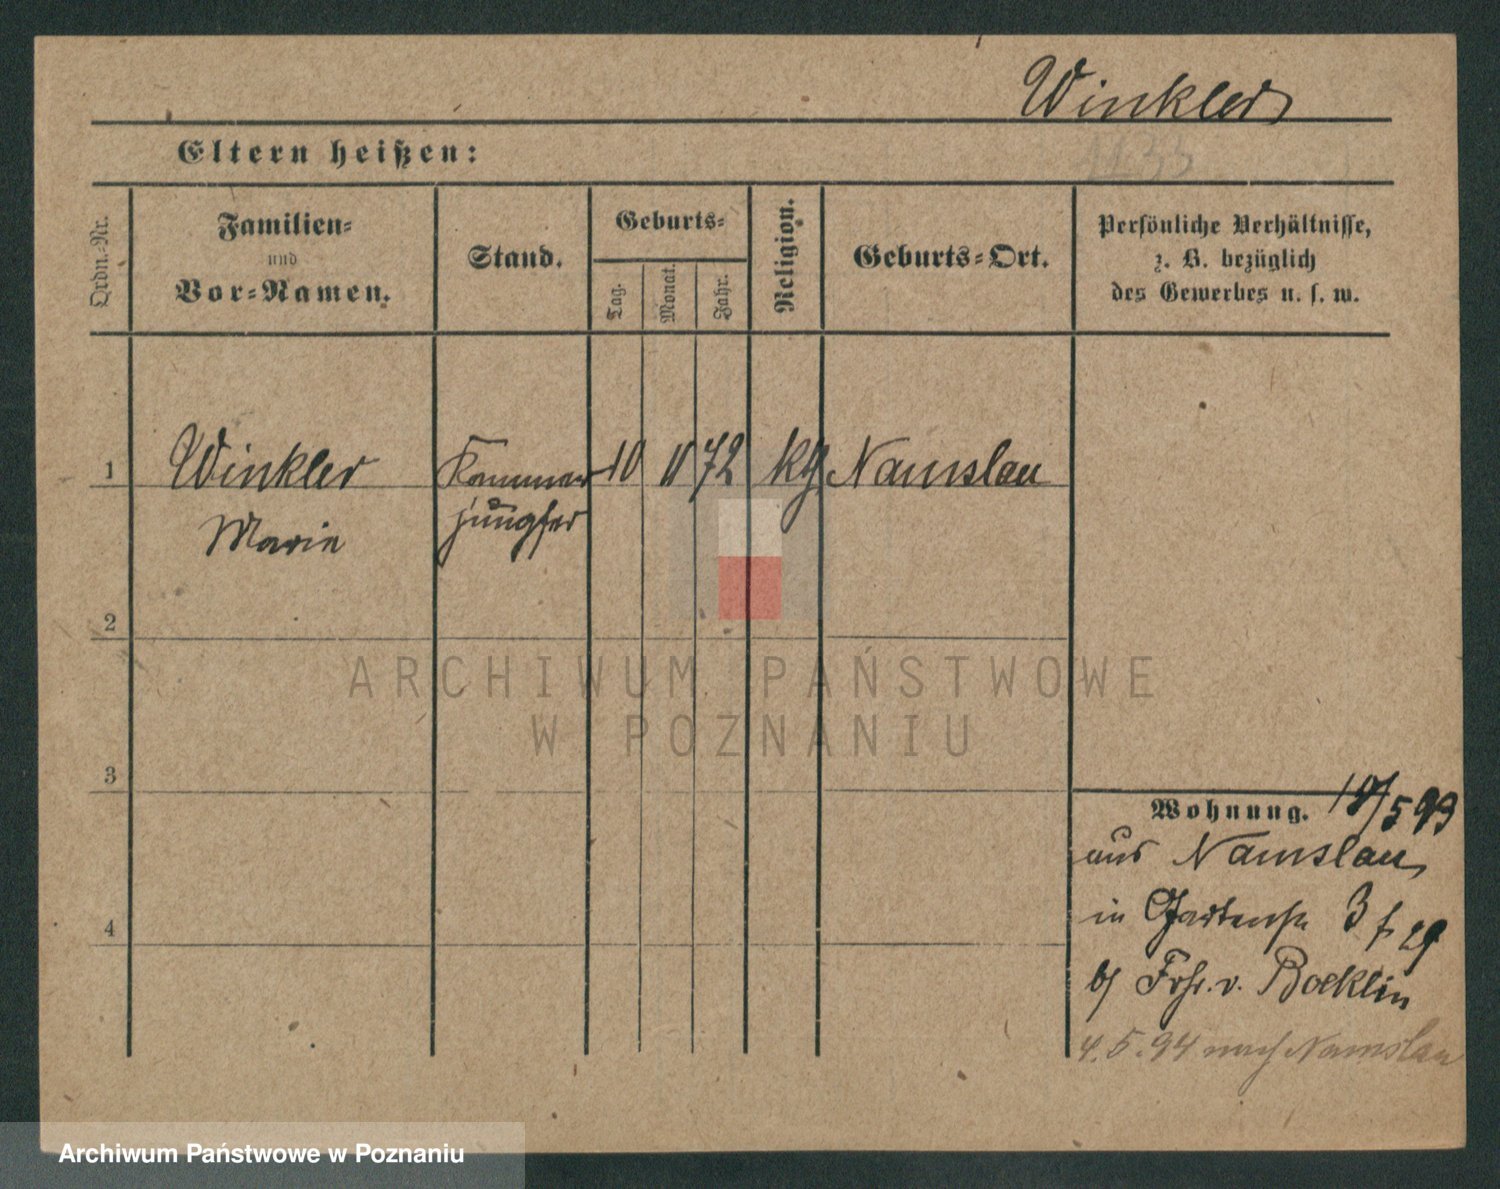 Winkler
Eltern heißen:
Ordn.-Nr.
Familien-
und
Vor-Namen.
Stand.
Geburts-
Tag.
Monat.
Jahr.
Religion.
Geburts-Ort.
Persönliche Verhältnisse,
z. B. bezüglich
des Gewerbes u. s. w.
1 Winkler Kammer 10 11 72 kg Namslau
Marie jungfer
2
ARCHIWUM PAŃSTWOWE
W POZNANIU
3
Wohnung. /5 93
aus Namslau
in Gartenstr 3
b/ Frhr. v. Boecklin
4
4.5.94 nach Namslau
Archiwum Państwowe w Poznaniu